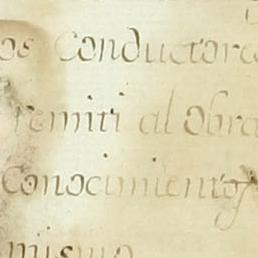 os Conductora
remiti al obra
Conocimientos
mismo